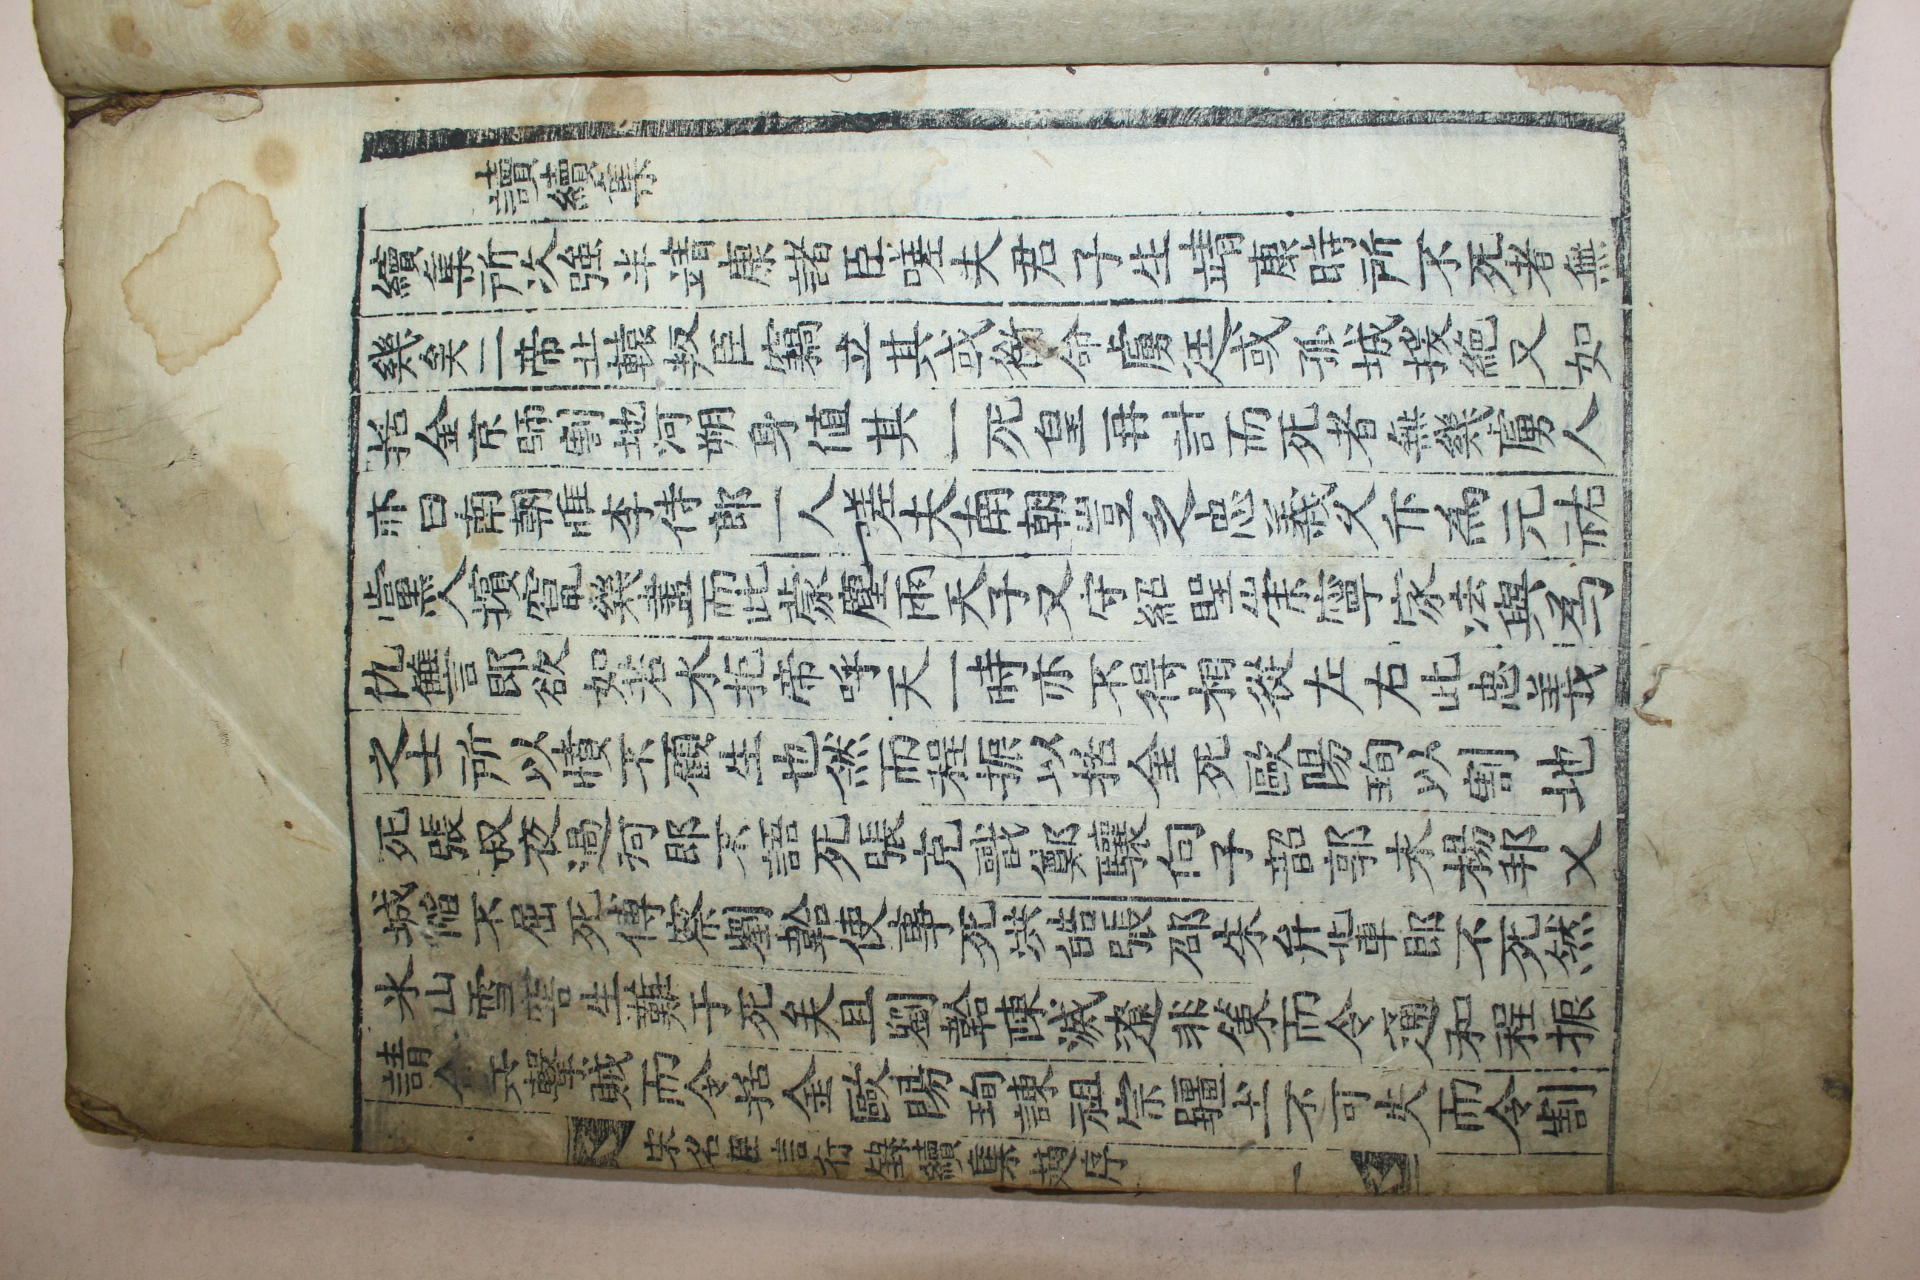 讀續集
續集所次強半靖康諸臣嗟夫君子生靖康時所不死者無
幾矣二帝北轅叛臣竊立其或銜命虜廷或孤城援絕又如
括金京師割地河朔身值其一死皇再計而死者無幾虜人
亦曰南朝惟李侍郎一人嗟夫南朝豈乏忠義久矣爲元祐
黨人擯竄幾盡而此蒙塵兩天子又守紹聖崇寧家法與爲
仇讎言郎欲如若水抱帝呼天一時亦不得相從左右此忠義
之士所以憤不顧生也然而程振以括金死歐陽珣以割地
死張叔夜過河郎不語死張克戩鄭驤向子韶郭永楊邦乂
城陷不屈死傅察劉韐使事死洪皓張邵朱弁輩郎不死然
氷山雪窖生難于死矣且劉韐陳滅遼非策而令通和程振
請合兵擊賊而令括金歐陽珣諫祖宗疆土不可失而令割
宋名臣言行錄續集 趙序 一